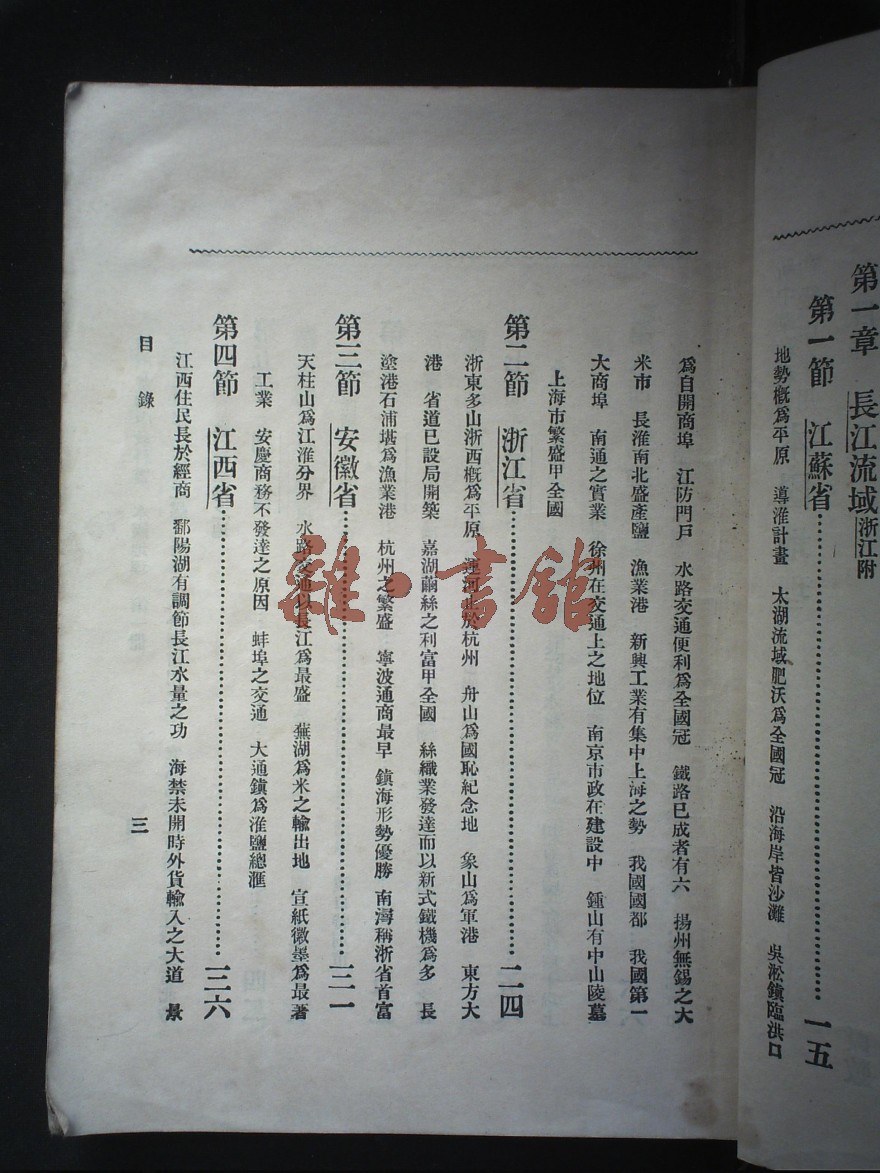 第一章　長江流域浙江附
第一節　江蘇省……………………一五
地勢槪爲平原　導淮計畫　太湖流域肥沃爲全國冠　沿海岸皆沙灘　吳淞鎭臨洪口
爲自開商埠　江防門戶　水路交通便利爲全國冠　鐵路已成者有六　揚州無錫之大
米市　長淮南北盛產鹽　漁業港　新興工業有集中上海之勢　我國國都　我國第一
大商埠　南通之實業　徐州在交通上之地位　南京市政在建設中　鍾山有中山陵墓
上海市繁盛甲全國
第二節　浙江省……………………二四
浙東多山浙西槪爲平原　運河止於杭州　舟山爲國恥紀念地　象山爲軍港　東方大
港　省道已設局開築　嘉湖繭絲之利富甲全國　絲織業發達而以新式鐵機爲多　長
塗港石浦堪爲漁業港　杭州之繁盛　寧波通商最早　鎭海形勢優勝　南潯稱浙省首富
第三節　安徽省……………………三一
天柱山爲江淮分界　水路交通以長江爲最盛　蕪湖爲米之輸出地　宣紙徽墨爲最著
工業　安慶商務不發達之原因　蚌埠之交通　大通鎭爲淮鹽總滙
第四節　江西省……………………三六
江西住民長於經商　鄱陽湖有調節長江水量之功　海禁未開時外貨輸入之大道　景
目錄
三
雜·書館